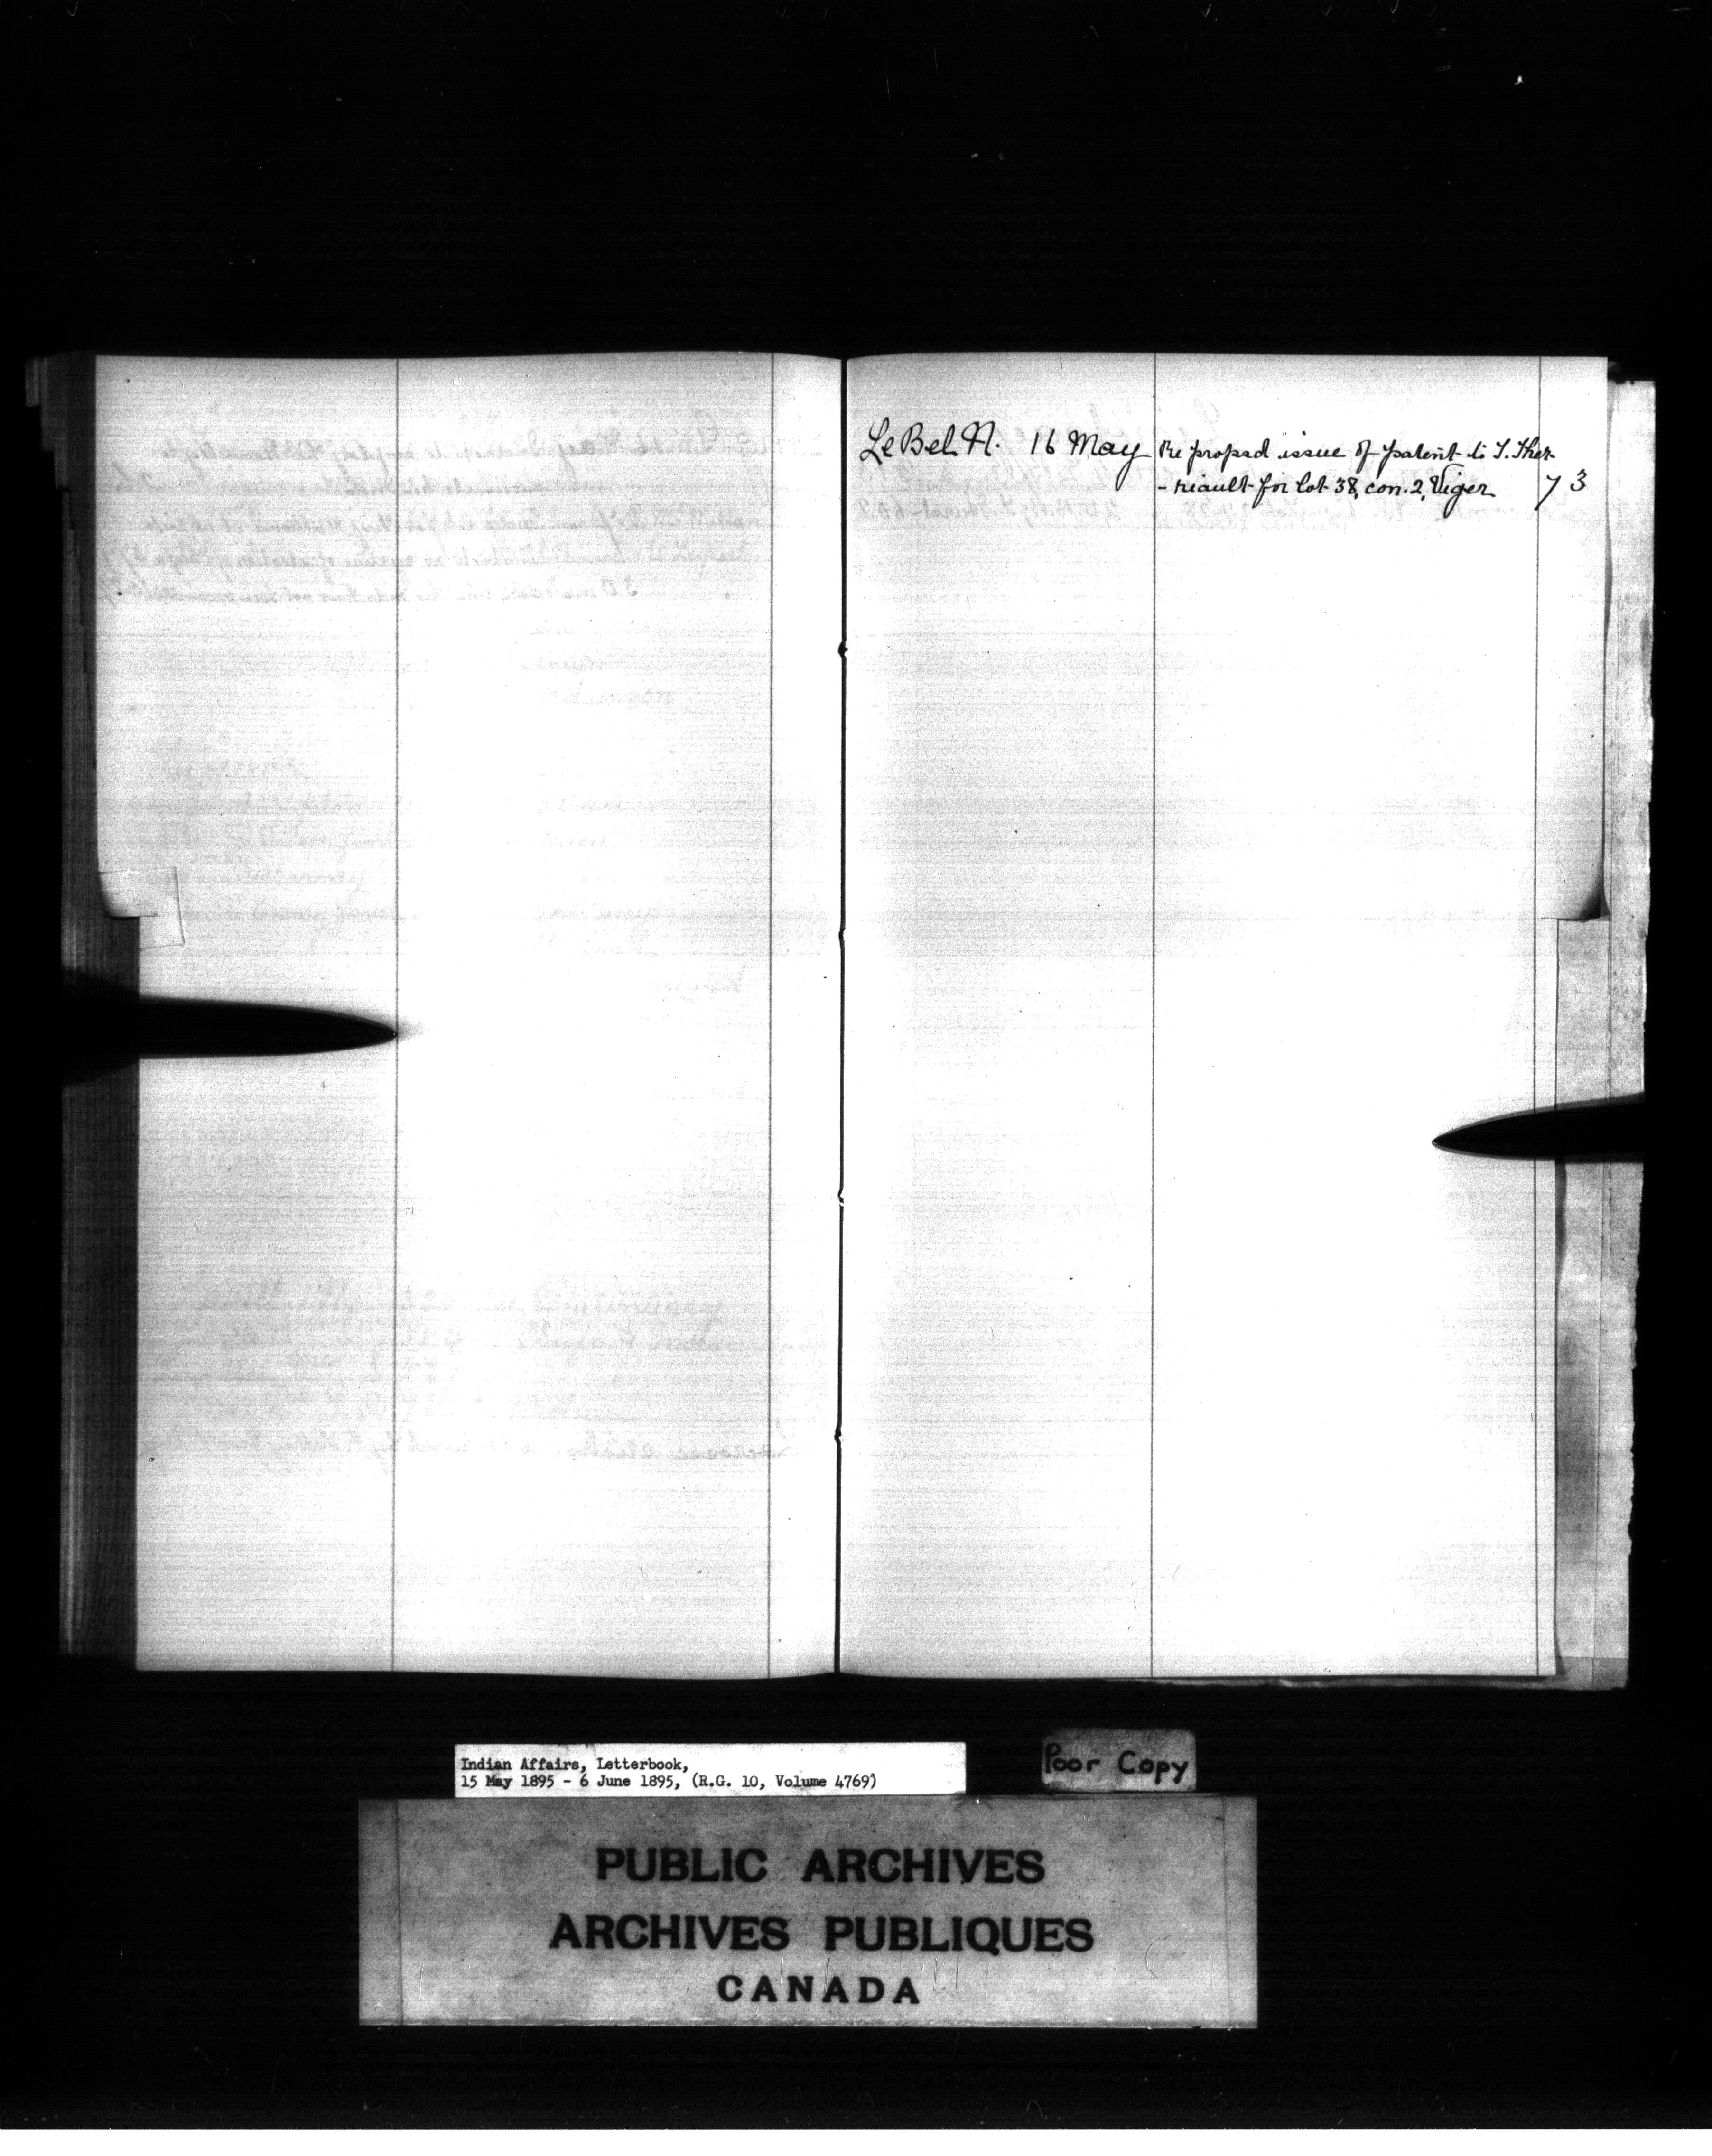 Le Bel N. 16 May Re propsd issue of patent to T. Ther
- riault for lot 38, con. 2, Viger 73
Indian Affairs, Letterbook,
15 May 1895 - 6 June 1895, (R.G. 10, Volume 4769)
Poor Copy
PUBLIC ARCHIVES
ARCHIVES PUBLIQUES
CANADA